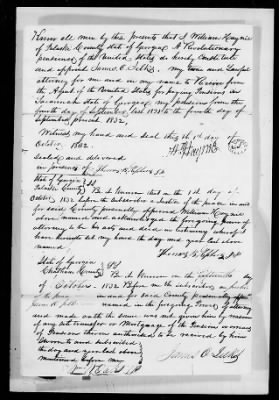 Know all men by these presents that I William Haynie
of Pulaski County State of Georgia A Revolutionary
pensioner of the United States do hereby Constitute
and appoint James O. my true and lawful
attorney for me and in my name to Receive from
the Agent of the United States for paying Pensions in
Savannah State of Georgia my pension from the
fourth day of September last 1831 to the fourth day of
September present 1832.
Witness my hand and Seal this the 1st day of
October 1832.
Sealed and delivered
in presence of
State of Georgia
Pulaski County
Be it known that on the 1st day of
October 1832 before the subscriber a Justice of the peace in and
for said County personally appeared William Haynie
above named and acknowledged the foregoing power of
attorney to be his act and deed in testimony whereof I
have hereunto set my hand the day and year last above
named
State of Georgia
Chatham County
Be it known on the day
of October 1832 Before the subscriber
in and for said County personally
named in the foregoing Power of attorney
and made oath the same was not given him by reason
of any sale transfer or Mortgage of the Pension or arrears
of Pension therein authorised to be received by him
Sworn to and subscribed
the day and year last above
mentioned before me
James O.